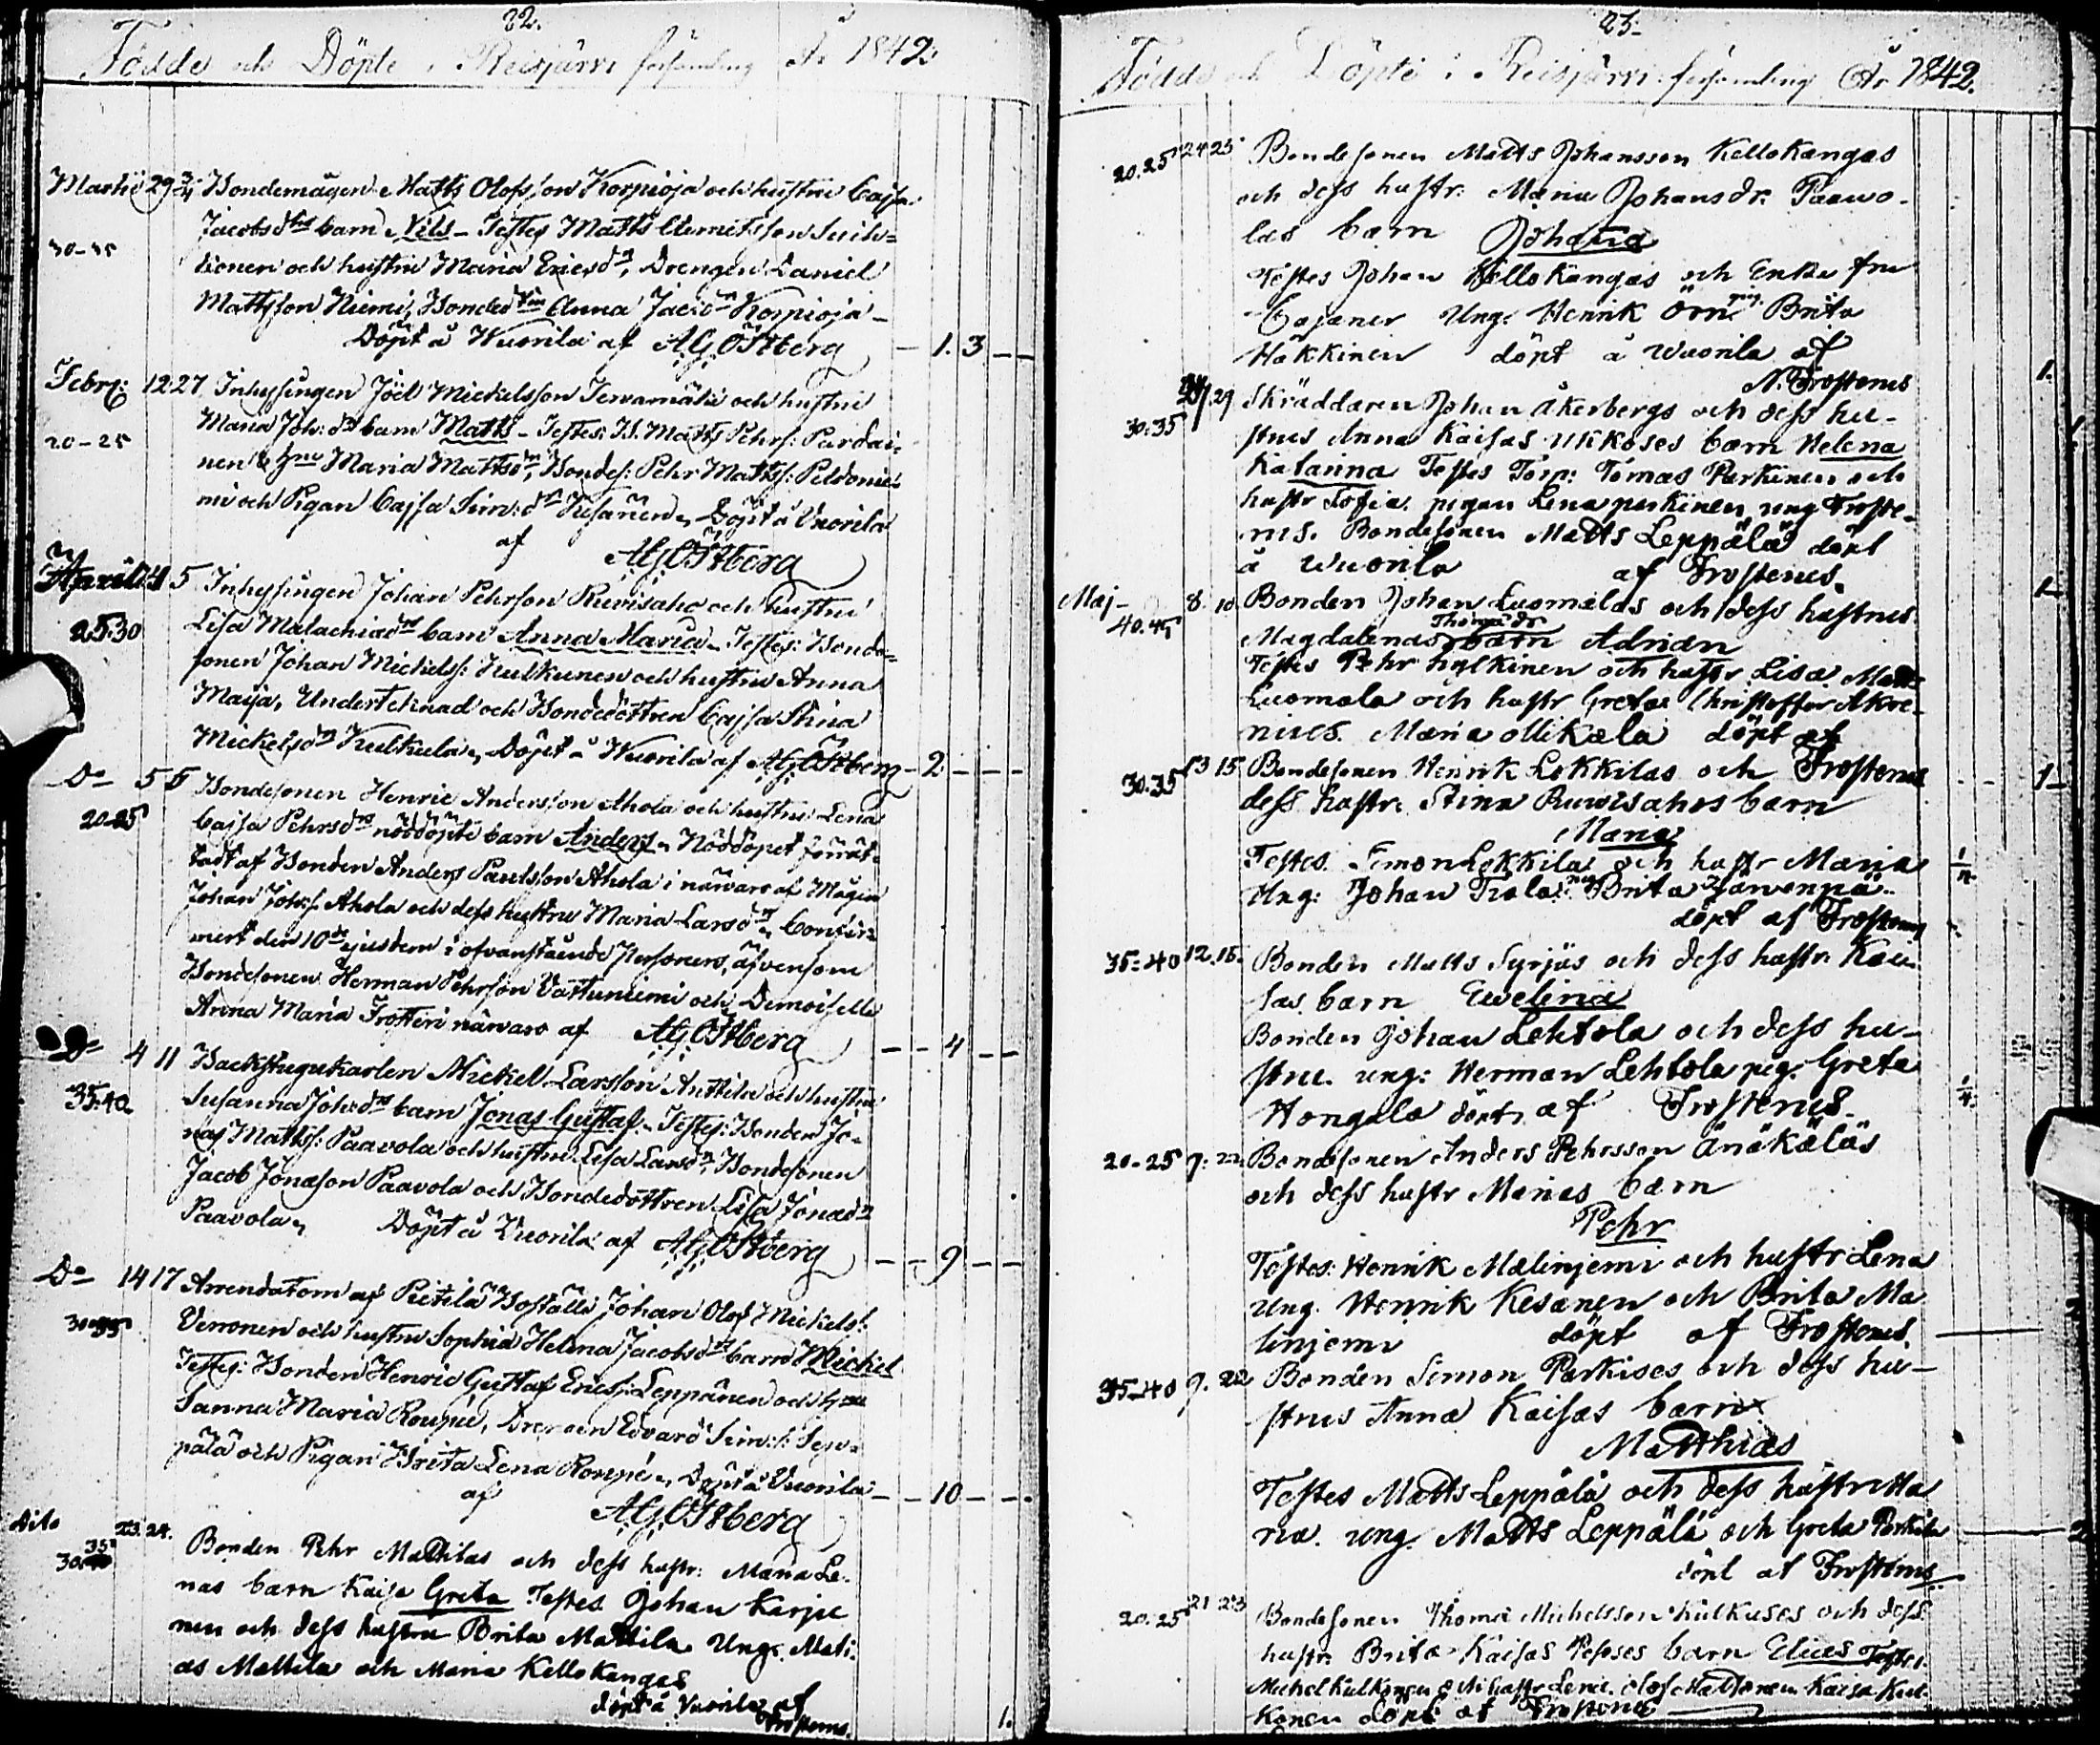 22.
Födde och Döpte i Reisjärvi församling År 1842.
Martii 29 3/4 Bondemågen Matts Olofsson Korpioja och hustru Cajsa
Jacobsdrs barn Nils - Testes Matts Clemetsson
30-35
och hustru Maria Ericsdr, Drengen Daniel
Mattsson Niemi, Bonded. Anna Jacsdr Korpioja
Döpt å Wuorila af A.G. Östberg 1. 3
Febr: 12 27 Inhysingen Joël Mickelsson och hustru
20-25 Maria Joh:dr barn Matts - Testes: B. Matts Pehrs: Pardai-
nen & hu Maria Mattsdr, Bondes: Pehr Matts: Peldonie-
mi och Pigan Cajsa Sim:dr Kesänen, Döpt å Vuorila
af A.G. Östberg
Aprill 4 5 Inhysingen Johan Pehrson Ruvisaho och hustru
25.30 Lisa Malachiædr barn Anna Maria - Testes: Bonde-
sonen Johan Mickels: Kulkunen och hustru Anna
Maija, Undertecknad och Bondedottren Cajsa Stina
Mickelsdr Kulkula, Döpt å Wuorila af A.G. Östberg - 2
Do 5 5 Bondesonen Henric Andersson Ahola och hustru Lena
20-25 Cajsa Pehrsdrs nöddöpte barn Anders - Nöddopet förrät-
tadt af Bonden Anders Paulsson Ahola i närvaro af Mågen
Johan Johs: Ahola och dess hustru Maria Larsdr, Confir-
mert den 10de ejusdem i ofvanstående Personers, äfvensom
Bondesonen Herman Pehrson Vattuniemi och Demoiselle
Anna Maria närvaro af A.G. Östberg 4
Do 4 11 Backstugukarlen Mickel Larsson Anttila och hustru
35.40 Susanna Johsdrs barn Jonas Gustaf - Testes: Bonden Jo-
nas Matts: Paavola och hustru Lisa Larsdr Bondesonen
Jacob Jonæson Paavola och Bondedottren Lisa Jonædr
Paavola, Döpt å Vuorila af A.G. Östberg 9
Do 14 17 Arrendatorn af Pietilä Boställe Johan Olof Mickels:
30-35 Verronen och hustru Sophia Helena Jacobsdrs barn Mickel
Testes: Bonden Henric Gustaf Erics: Leppänen och hu
Sanna Maria Roupé, Drengen Edvard Sim:s:
pälä och Pigan Brita Lena Roupé, Döpt å Vuorila 10
af A.G. Östberg
dito 23. 24. Bonden Pehr Mattilas och dess hustr: Maria Le-
30.35 nas barn Kaisa Greta Testes Johan Karjie
nen och dess hustru Brita Mattila Ung: Mati-
as Mattila och Maria Kellokangas
döpt å Vuorila af
Frosterus. 1.
23.
Födde och Döpte i Reisjärvi församling År 1842.
20.25 24 25 Bondesonen Matts Johansson Kellokangas
och dess hustr. Maria Johansdr. Paawo-
las barn Johana
Testes Johan Kellokangas och Enke fru
Cajaner Ung. Henrik Örn pig. Brita
Häkkinen döpt å Wuorila af
N. Frosterus 1.
29 Skräddaren Johan Åkerbergs och dess hu-
30.35 strus Anna Kaisas Ukkoses barn Helena
Katarina Testes Torp: Tomas Parkinen och
hustr Sofia. pigan Lena parkinen ung Froste-
rus. Bondesonen Matts Leppälä döpt
å Wuorila af Frosterus. 1
Maj 8. 10 Bonden Johan Luomalas och dess hustrus
40.45 Magdalenas Thomædr barn Adrian
Testes Pehr hylkinen och hustr Lisa. Matts
Luomala och hustr Greta Christoffer Akre-
nius. Maria Ollikala döpt af
Frosterus 1
30.35 13 15 Bondesonen Henrik Lokkilas och
dess hustr. Stina Ruwisahos barn
Maria
Testes. Simon Lokkila och hustr Maria
Ung: Johan Tiala pig Brita Järvenpä
döpt af Frosterus
35-40 12. 15. Bonden Matts Syrjäs och dess hustr. Kai-
sas barn Ewelina
Bonden Johan Lehtola och dess hu-
stru. ung: Herman Lehtola pig. Greta
Hongala döpt af Frosterus.
20-25 9: 22 Bondesonen Anders Pehrsson Änäkäläs
och dess hustr Marias barn
Pehr
Testes: Henrik Malinjemi och hustr Lena
Ung. Henrik Kesänen och Brita Ma
linjemi döpt af Frosterus. 2
35-40 9. 22 Bonden Simon Parkises och dess hu-
strus Anna Kaisas barn
Matthias
Testes Matts Leppälä och dess hustr Ma
ria. ung. Matts Leppälä och Greta Parkila
döpt af Frosterus. 2
20-25 21 23 Bondesonen Thomas Michelsson Kulkuses och dess
hustr. Brita Kaisas barn Elias Testes.
Michel Kulkonen och hustr Lena. Olof Kaisa Kul-
konen döpt af Frosterus